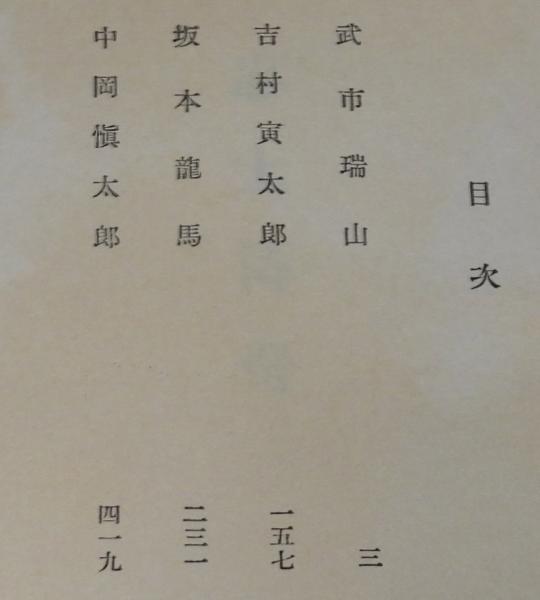 目次
武市瑞山 三
吉村寅太郎 一五七
坂本龍馬 二三一
中岡愼太郎 四一九